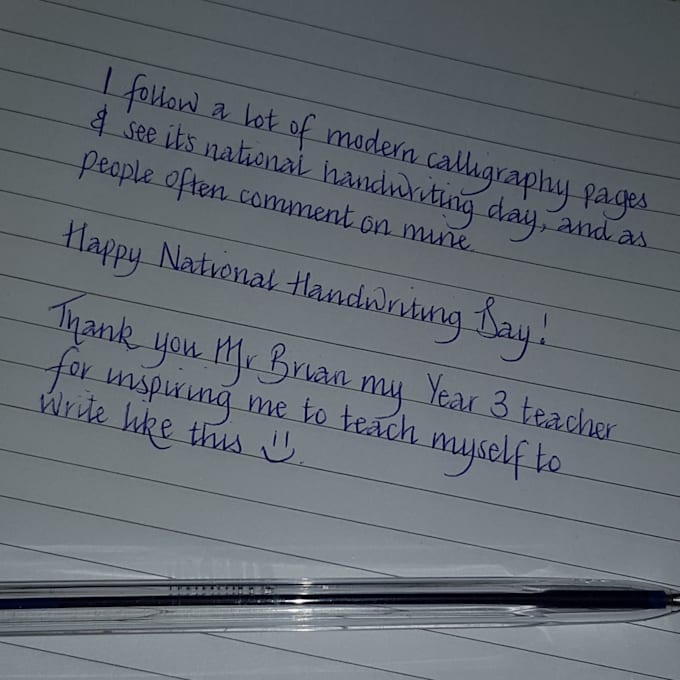 I follow a lot of modern calligraphy pages
& see its national handwriting day, and as
people often comment on mine.
Happy National Handwriting Day!
Thank you Mr Brian my Year 3 teacher
for inspiring me to teach myself to
write like this :).